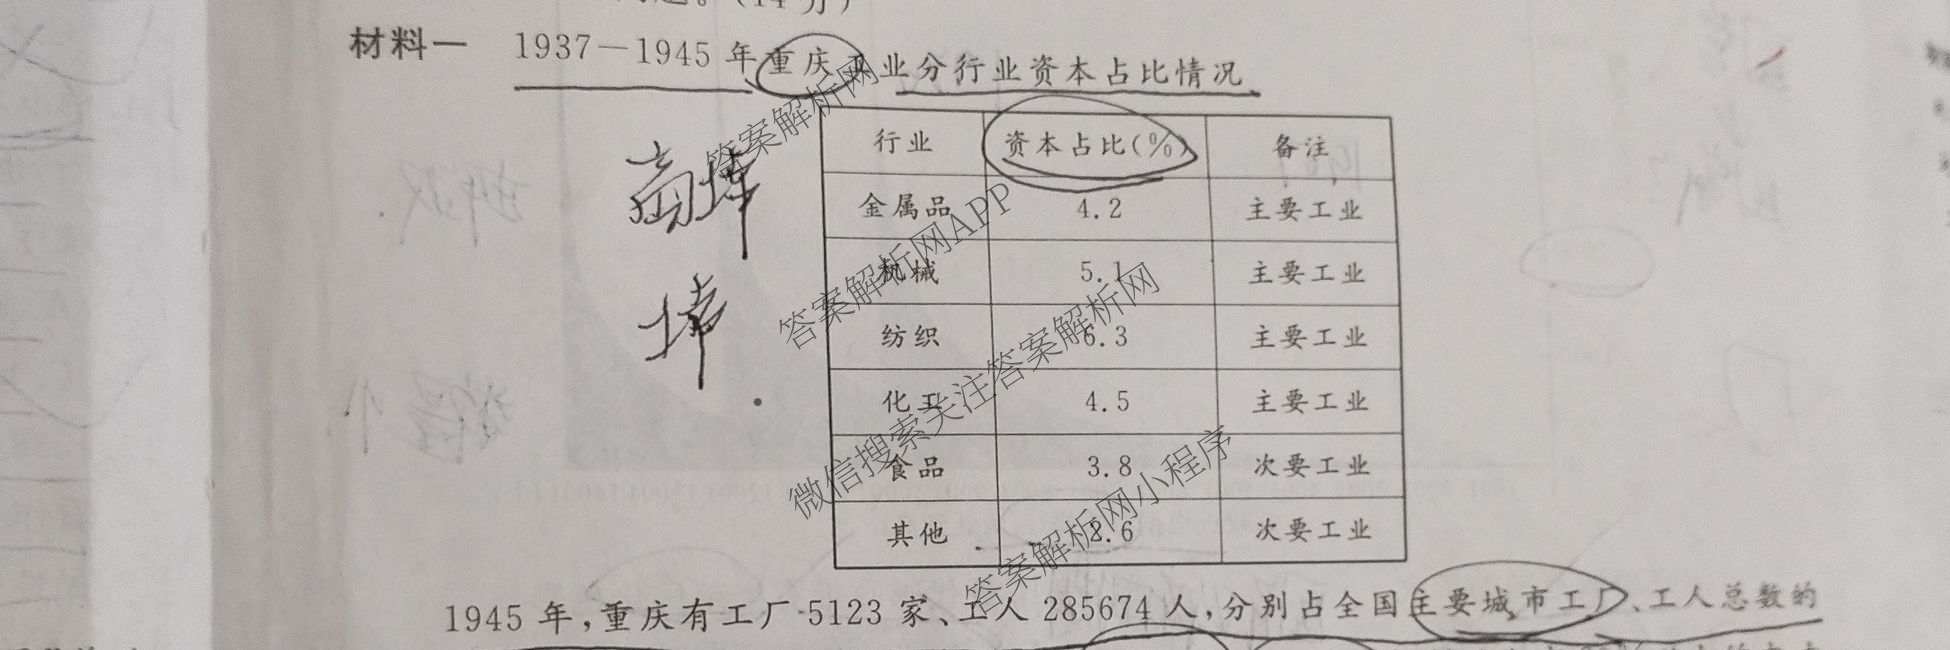 (14分)
材料一 1937—1945年重庆工业分行业资本占比情况
行业 资本占比(%) 备注
金属品 4.2 主要工业
机械 5.1 主要工业
纺织 6.3 主要工业
化工 4.5 主要工业
食品 3.8 次要工业
其他 2.6 次要工业
1945年,重庆有工厂5123家、工人285674人,分别占全国主要城市工厂、工人总数的
答案解析网
答案解析网APP
微信搜索关注答案解析网
答案解析网小程序